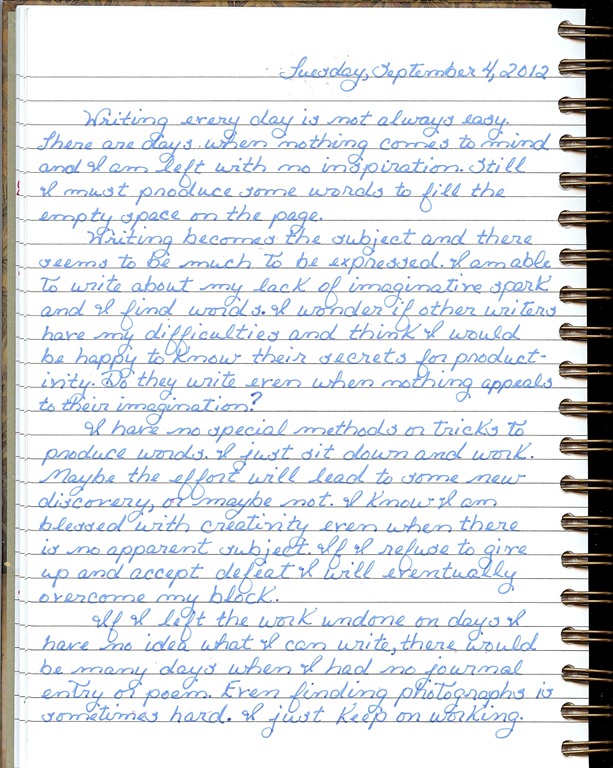 Tuesday, September 4, 2012
Writing every day is not always easy.
There are days when nothing comes to mind
and I am left with no inspiration. Still
I must produce some words to fill the
empty space on the page.
Writing becomes the subject and there
seems to be much to be expressed. I am able
to write about my lack of imaginative spark
and I find words. I wonder if other writers
have my difficulties and think I would
be happy to know their secrets for product-
ivity. Do they write even when nothing appeals
to their imagination?
I have no special methods or tricks to
produce words. I just sit down and work.
Maybe the effort will lead to some new
discovery, or maybe not. I know I am
blessed with creativity even when there
is no apparent subject. If I refuse to give
up and accept defeat I will eventually
overcome my block.
If I left the work undone on days I
have no idea what I can write, there would
be many days when I had no journal
entry or poem. Even finding photographs is
sometimes hard. I just keep on working.